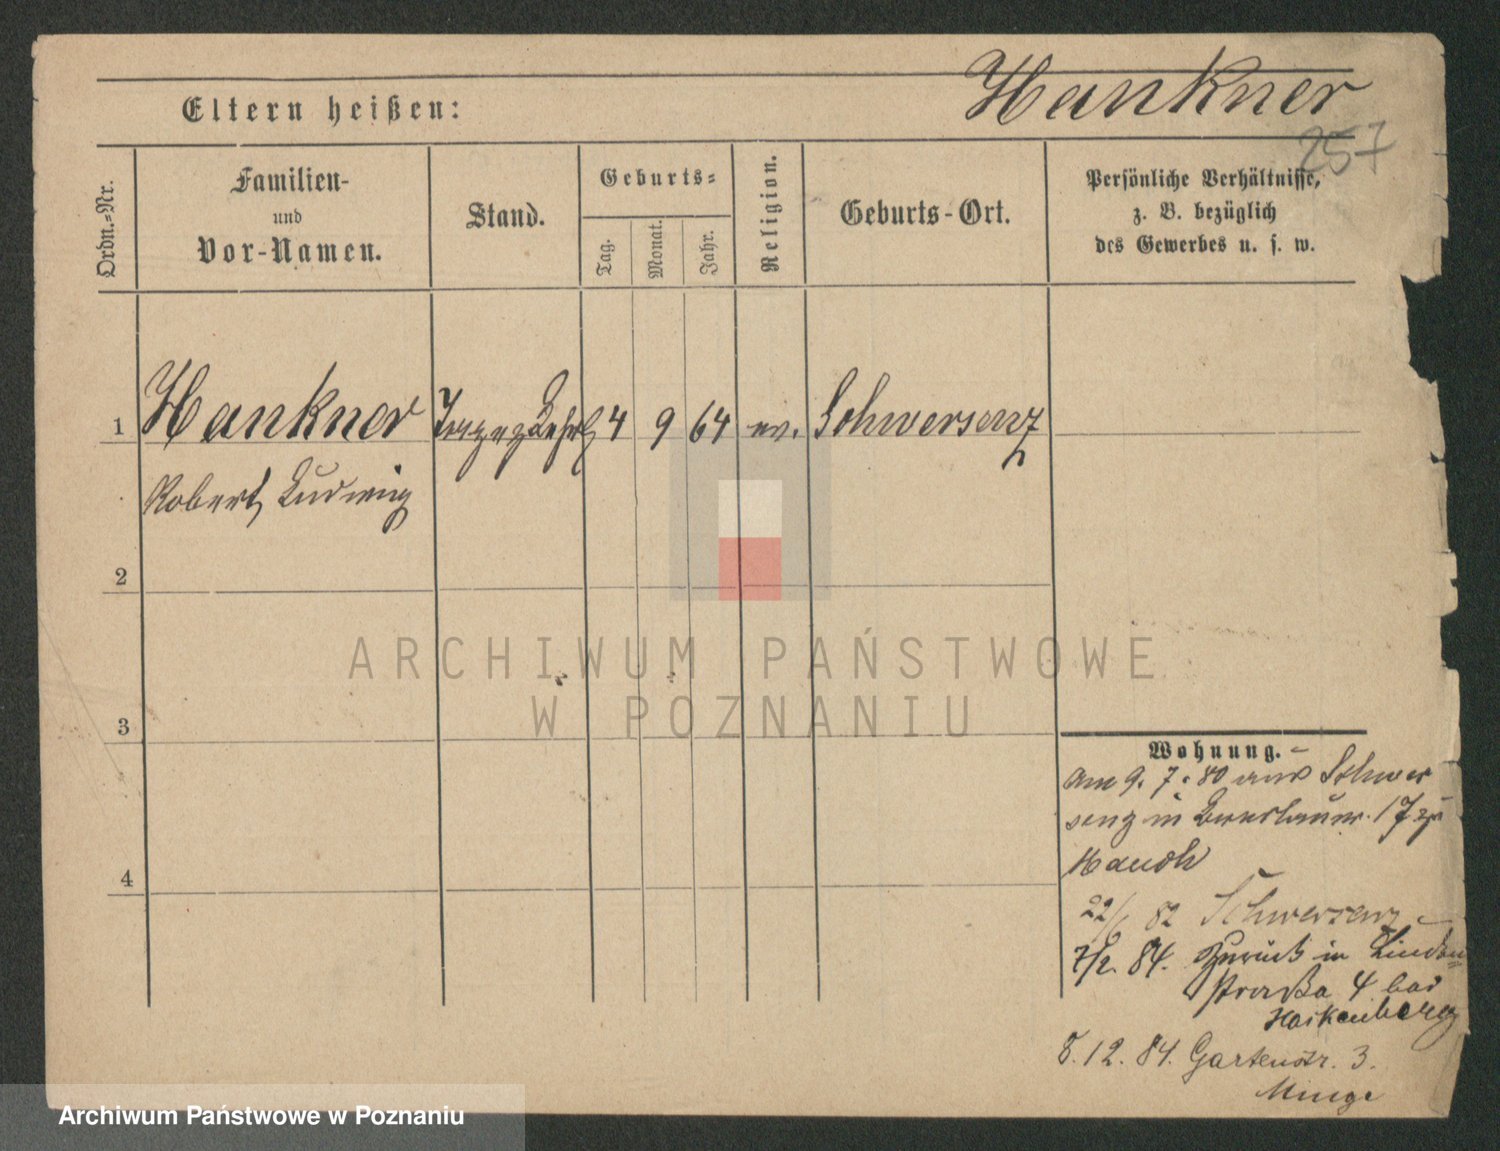 Hankner
Eltern heißen:
257
Ordn.-Nr.
Familien-
und
Vor-Namen.
Stand.
Geburts-
Tag.
Monat.
Jahr.
Religion.
Geburts-Ort.
Persönliche Verhältnisse,
z. B. bezüglich
des Gewerbes u. s. w.
1 Hankner 4 9 64 ev. Schwersenz
Robert Ludwig
2
3
4
ARCHIWUM PAŃSTWOWE
W POZNANIU
Wohnung.
am 9. 7. 80 aus Schwer
senz in 17
22/6 82 Schwersenz
7/2. 84. Zurück in Linden
straße 4 bei
Hackenberg
8. 12. 84. Gartenstr. 3.
Minge
Archiwum Państwowe w Poznaniu